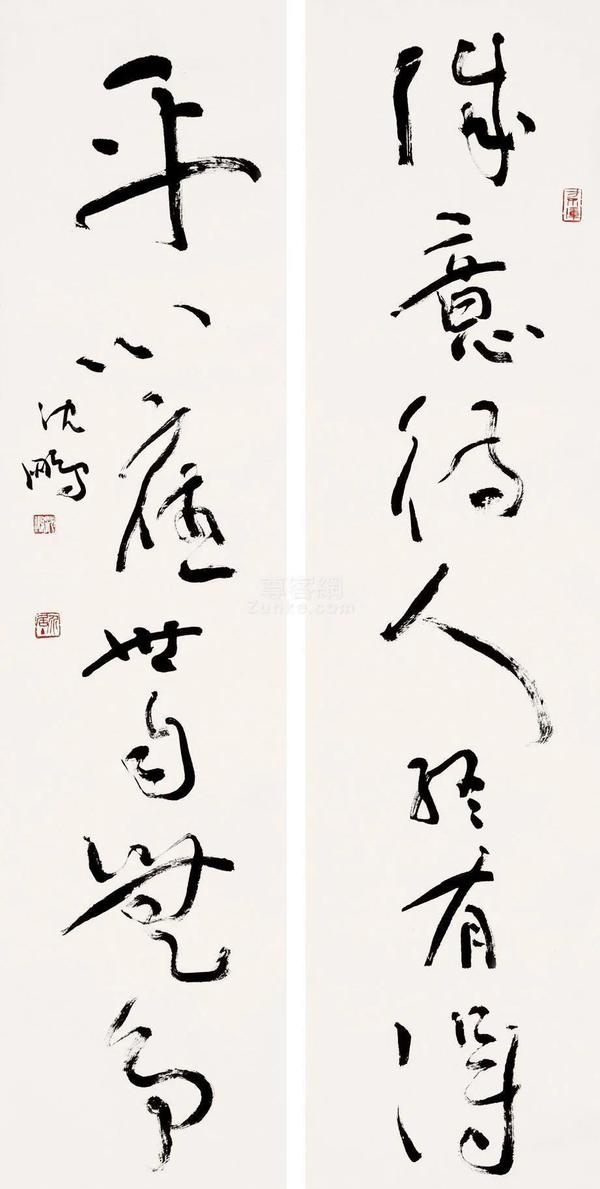 誠意待人終有得
平心應世自無爭
沈鵬
尊客網
Zunke.com